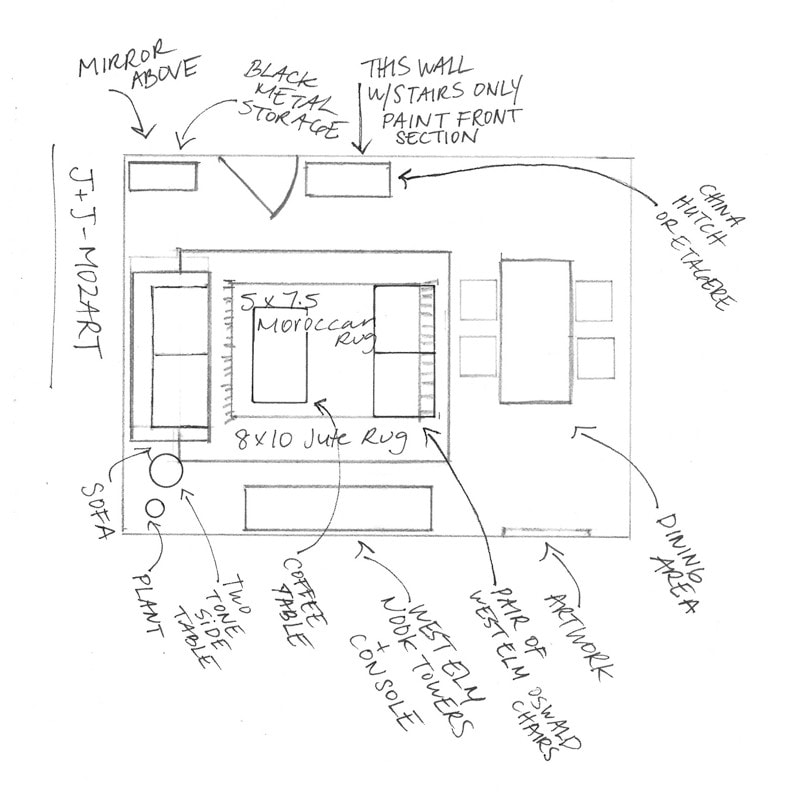 MIRROR
ABOVE
BLACK
METAL
STORAGE
THIS WALL
W/STAIRS ONLY
PAINT FRONT
SECTION
CHINA
HUTCH
OR ETAGERE
J+J-MOZART
5 x 7.5
Moroccan
Rug
8x10 Jute Rug
SOFA
PLANT
TWO
TONE
SIDE
TABLE
COFFEE
TABLE
WEST ELM
NOOK TOWERS
+
CONSOLE
PAIR OF
WEST ELM OSWALD
CHAIRS
ARTWORK
DINING
AREA